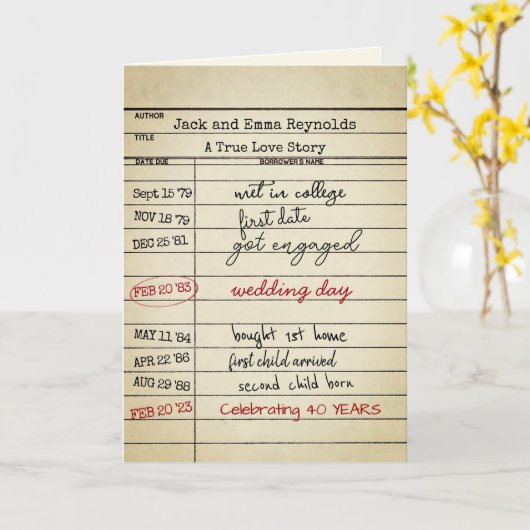 AUTHOR
Jack and Emma Reynolds
TITLE
A True Love Story
DATE DUE BORROWER'S NAME
Sept 15 '79 met in college
NOV 18 '79 first date
DEC 25 '81 got engaged
FEB 20 '83 wedding day
MAY 11 '84 bought 1st home
APR 22 '86 first child arrived
AUG 29 '88 second child born
FEB 20 '23 Celebrating 40 YEARS